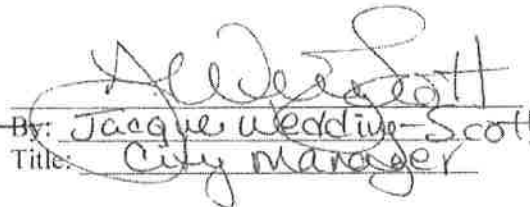 By: Jacque Wedding-Scott
Title: City Manager